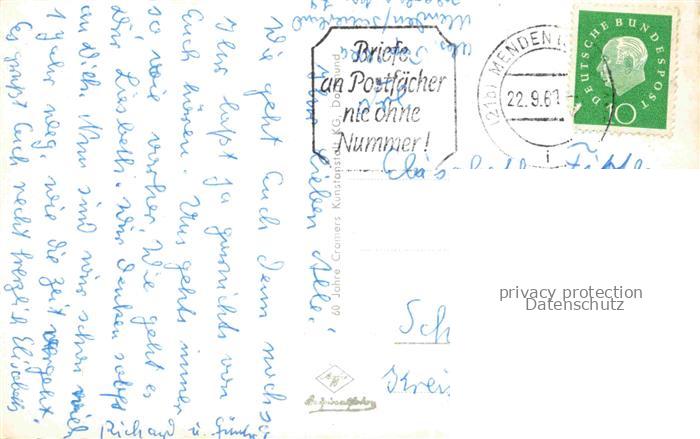 Menden/Sauerland
Ihr Lieben Alle!
Wie geht Euch denn noch so
Ihr laßt ja garnichts von
Euch hören. Uns gehts immer
so wie vorher. Wie geht es
Dir Liesbeth. Wir denken oft
an Dich. Nun sind wir schon
1 Jahr weg, wie die Zeit vergeht.
Es grüßt Euch recht herzlich Elisabeth
Richard u.
Briefe
an Postfächer
nie ohne
Nummer!
(21b) MENDEN
22.9.61
i
DEUTSCHE BUNDESPOST
10
60 Jahre Cromers Kunstanstalt KG, Dortmund
Sch
Kreis
Originalfoto
privacy protection
Datenschutz